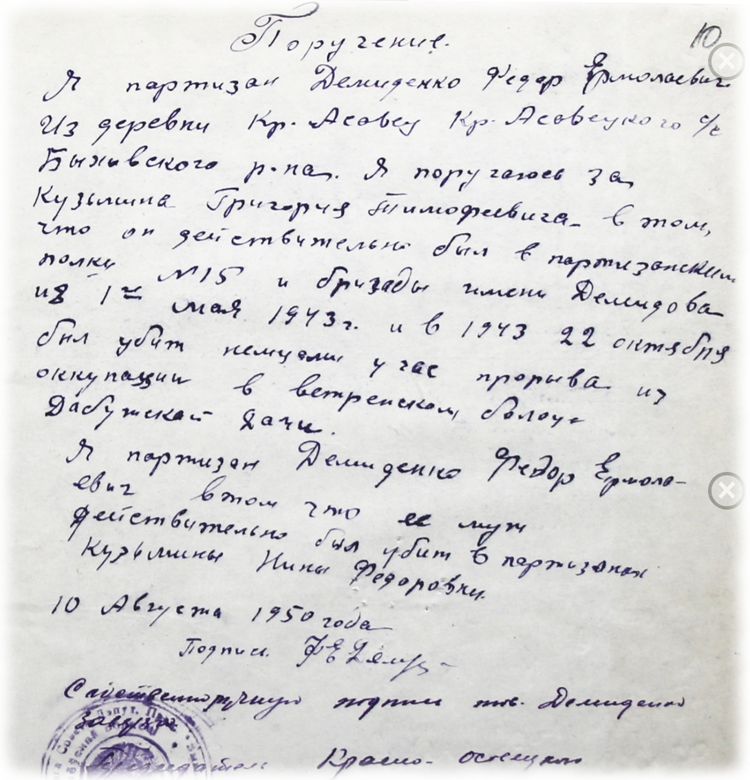 Поручение.
10
Я партизан Демиденко Федар Ермолаевич
Из деревни Кр-Асовец Кр-Асовецкого с/с
Быховского р-на. Я поругаюсь за
Кузьмина Григория Тимофеевича в том,
что он действительно был в партизанским
полки №15 и бригады имени Демидова
из 1го мая 1943г. и в 1943 22 октября
был убит немцами у час прорыва из
оккупации в ветренском болоте
Дабужской дачи.
Я партизан Демиденко Федор Ермола-
евич втом что ее муж
действительно был убит в партизанах
Кузьмины Нины Федоровны.
10 Августа 1950 года
Подпись
подпись тов. Демиденко
Красно-осовецкого